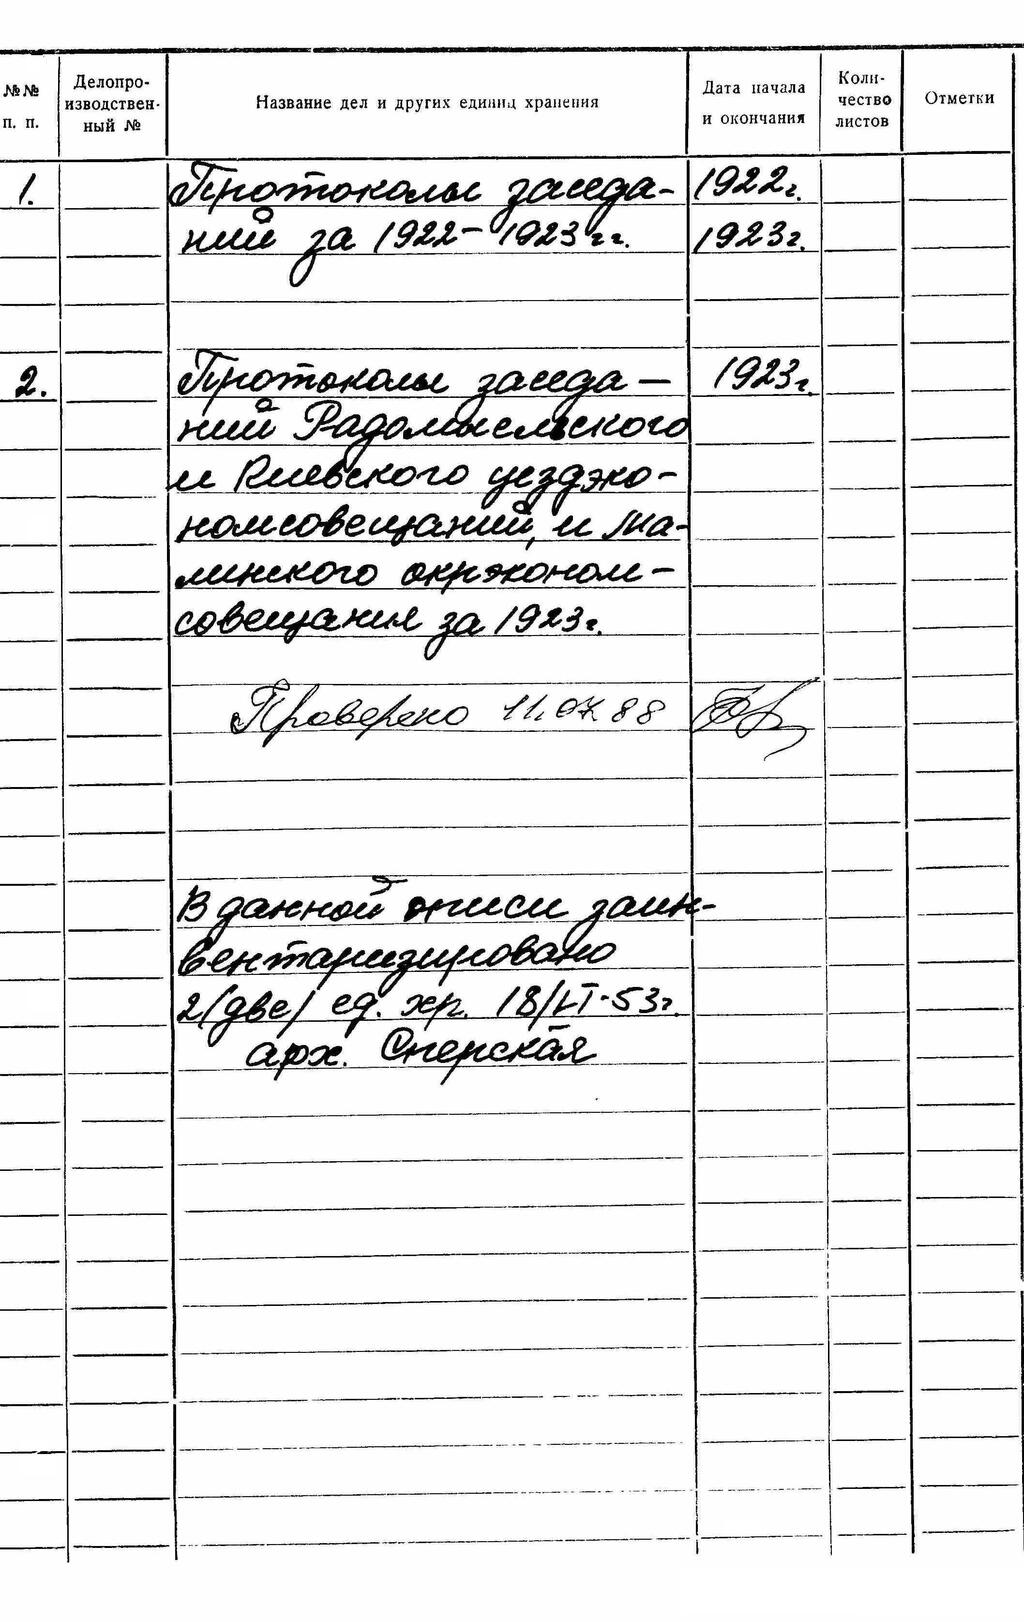 №№ п. п.
Делопро-
изводствен-
ный №
Название дел и других единиц хранения
Дата начала
и окончания
Коли-
чество
листов
Отметки
1. Протоколы заседа- 1922г.
ний за 1922-1923гг. 1923г.
2. Протоколы заседа- 1923г.
ний Радомысельского
и Киевского уездэко-
номсовещаний, и Ма-
линского окрэконом-
совещания за 1923г.
Проверено 11.07.88
В данной описи заин-
вентаризировано
2/две/ ед. хр. 18/VI-53г.
арх. Сперская